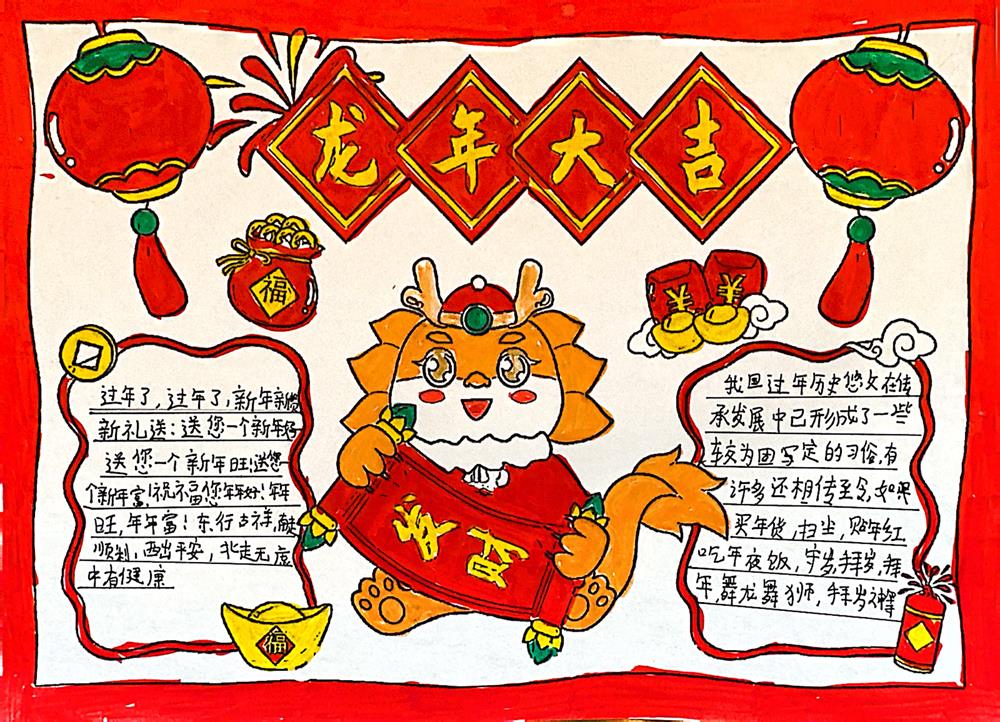 龙年大吉
福
过年了,过年了,新年新
新礼送:送您一个新年好
送您一个新年旺!送您一
个新年富!祝福您年年好!年年
旺,年年富!东行吉祥,南走
顺利,西出平安,北走无虑
中有健康
福
发财
我国过年历史悠久在传
承发展中已形成了一些
较为固定的习俗,有
许多还相传至今,如
买年货,扫尘,贴年红
吃年夜饭,守岁,拜岁,拜
年,舞龙舞狮,拜岁神